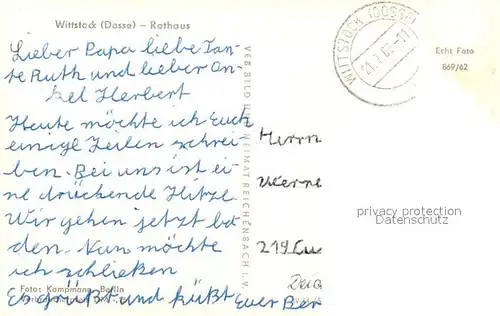 Wittstock (Dosse) – Rathaus
Lieber Papa liebe Tan-
te Ruth und lieber On-
kel Herbert
Heute möchte ich Euch
einige Zeilen schrei-
ben. Bei uns ist ei-
ne drückende Hitze.
Wir gehen jetzt ba-
den. Nun möchte
ich schließen
Es grüßt und küßt Euer Ber
Foto: Kampmann, Berlin
VEB BILD UND HEIMAT REICHENBACH I. V.
WITTSTOCK (DOSSE)
Echt Foto
869/62
Herrn
Werne
privacy protection
Datenschutz